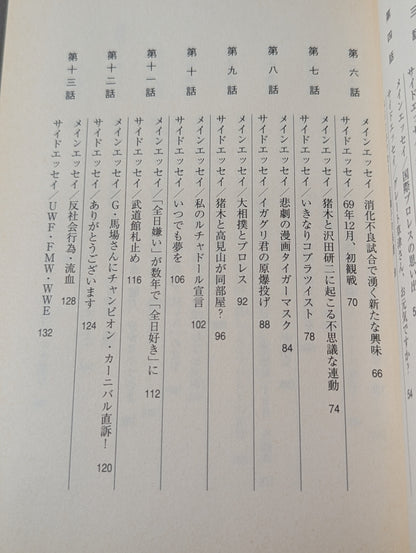 三話
サイドエッセイ／国際プロレスの思い出
第四話
第六話
メインエッセイ／消化不良試合で湧く新たな興味 66
サイドエッセイ／69年12月、初観戦 70
第七話
メインエッセイ／猪木と沢田研二に起こる不思議な連動 74
サイドエッセイ／いきなりコブラツイスト 78
第八話
メインエッセイ／悲劇の漫画タイガーマスク 84
サイドエッセイ／イガグリ君の原爆投げ 88
第九話
メインエッセイ／大相撲とプロレス 92
サイドエッセイ／猪木と高見山が同部屋？ 96
第十話
メインエッセイ／私のルチャドール宣言 102
サイドエッセイ／いつでも夢を 106
第十一話
メインエッセイ／「全日嫌い」が数年で「全日好き」に 112
サイドエッセイ／武道館札止め 116
第十二話
メインエッセイ／G・馬場さんにチャンピオン・カーニバル直訴！ 120
サイドエッセイ／ありがとうございます 124
第十三話
メインエッセイ／反社会行為・流血 128
サイドエッセイ／UWF・FMW・WWE 132